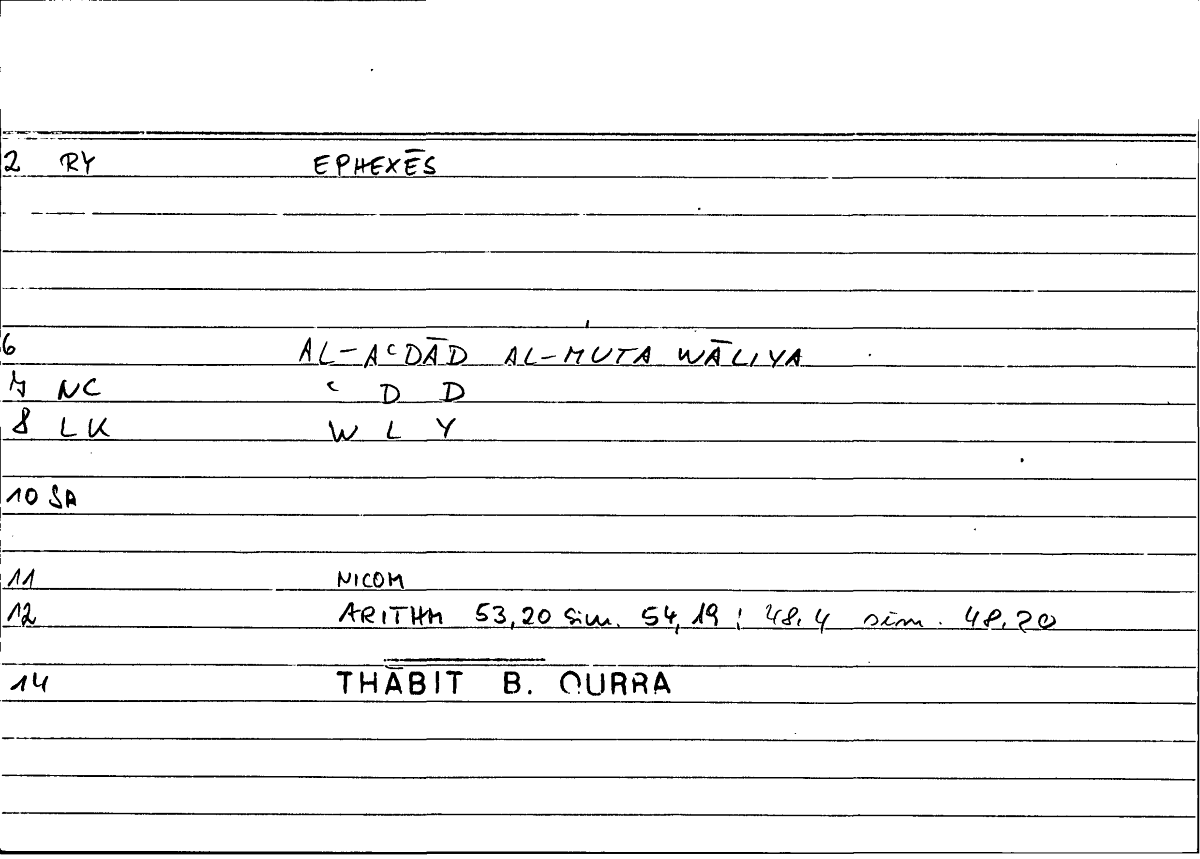 2 RY EPHEXĒS
6 AL-AʿDĀD AL-MUTA WĀLIYA
7 NC ʿ D D
8 LK W L Y
10 SA
11 NICOM
12 ARITHM 53,20 sim. 54,19 ; 48,4 sim. 48,20
14 THĀBIT B. QURRA